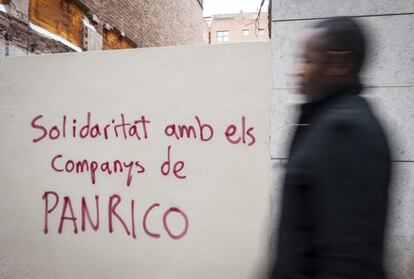 Solidaritat amb els
Companys de
PANRICO